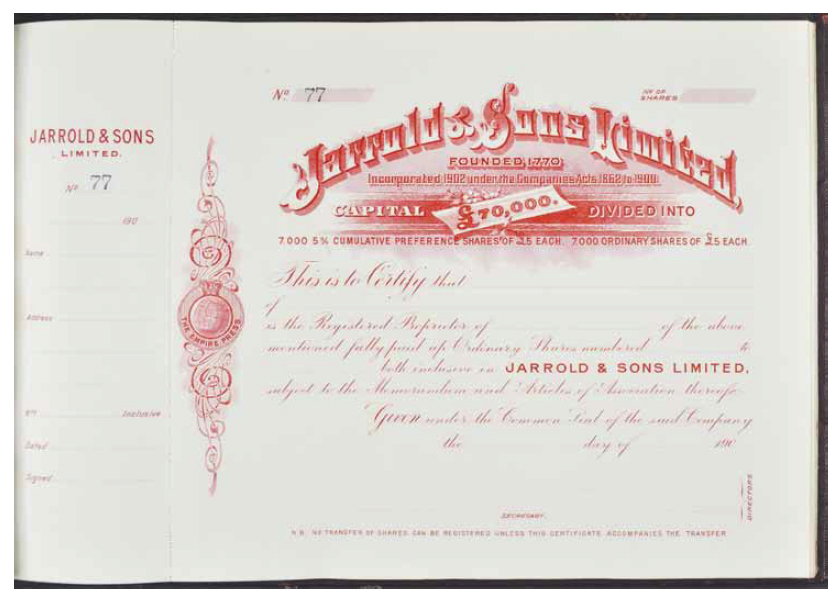 JARROLD & SONS
LIMITED.
No 77
190
Name
Address
to Inclusive
Dated
Signed
THE EMPIRE PRESS
No 77
No OF
SHARES
Jarrold & Sons Limited
FOUNDED 1770
Incorporated 1902 under the Companies Acts 1862 to 1900.
CAPITAL £70,000. DIVIDED INTO
7.000 5% CUMULATIVE PREFERENCE SHARES OF £5 EACH. 7.000 ORDINARY SHARES OF £5 EACH.
This is to Certify that
of
is the Registered Proprietor of of the above
mentioned fully paid up Ordinary Shares numbered to
both inclusive in JARROLD & SONS LIMITED,
subject to the Memorandum and Articles of Association thereof.
Given under the Common Seal of the said Company
the day of 190
DIRECTORS
SECRETARY.
N.B. NO TRANSFER OF SHARES CAN BE REGISTERED UNLESS THIS CERTIFICATE ACCOMPANIES THE TRANSFER